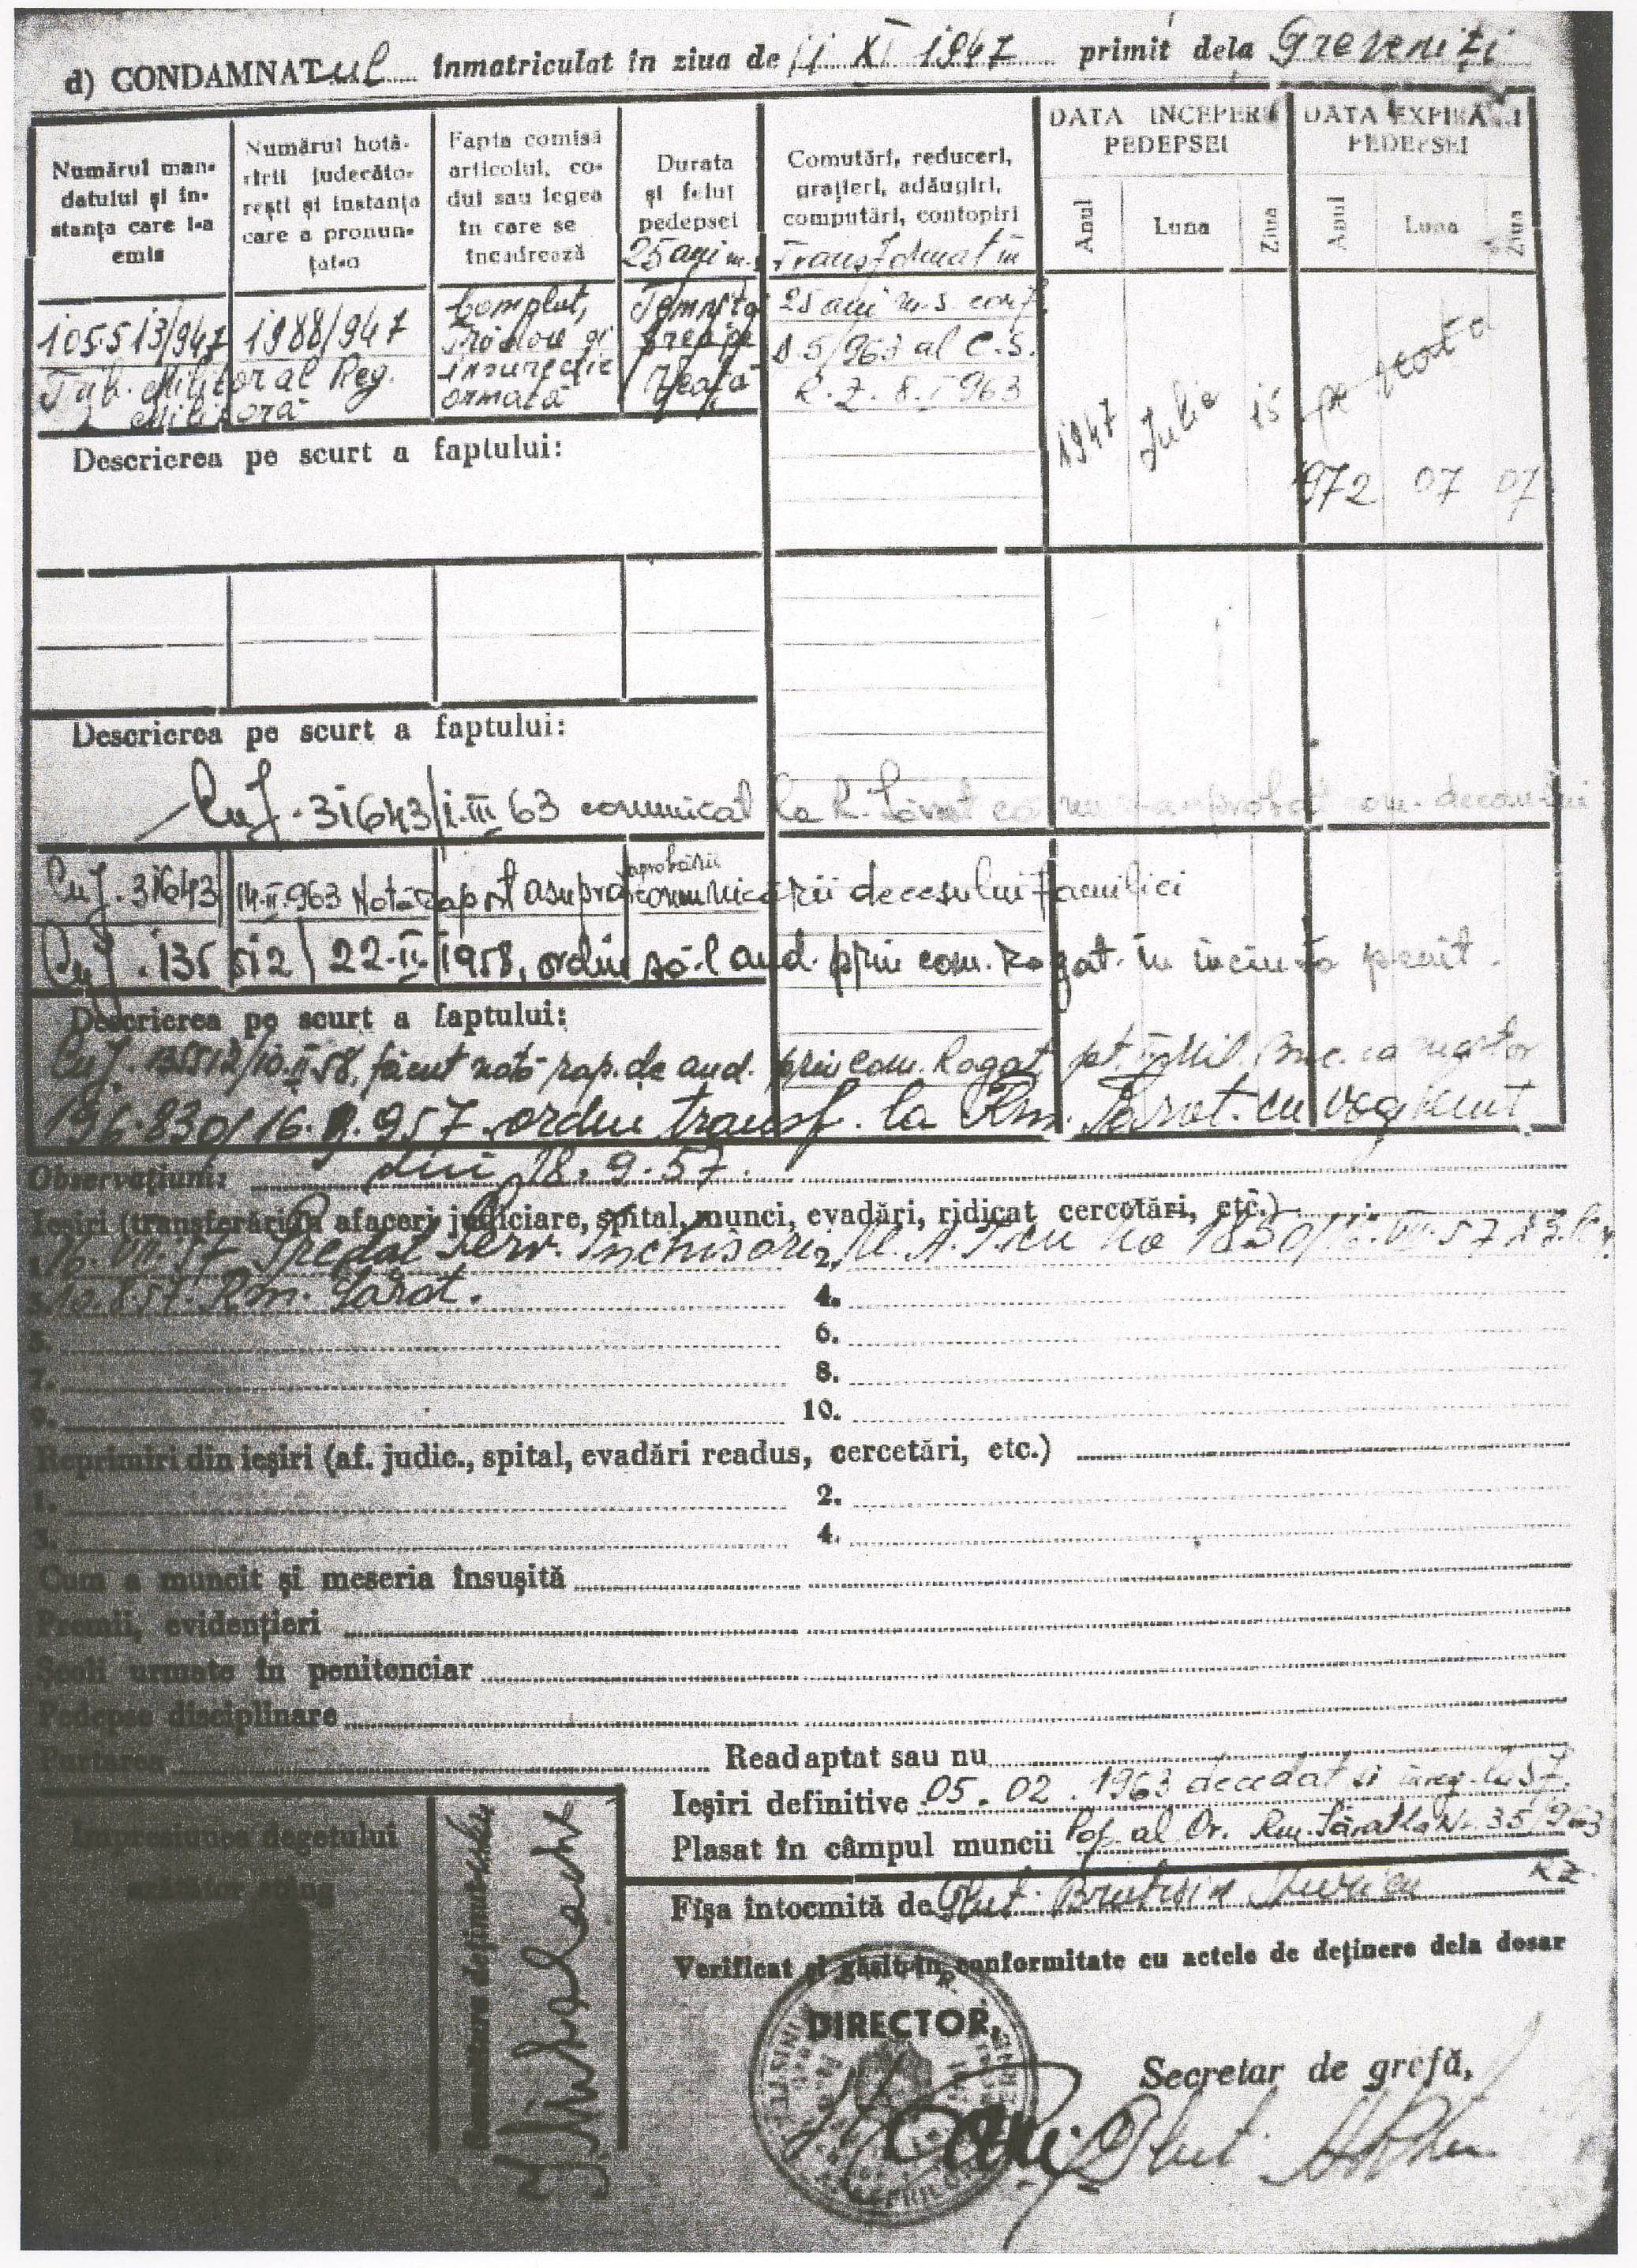 d) CONDAMNATul inmatriculat in ziua de 11 XI 1947 primit dela Greveniți
Numărul man-
datului și in-
stanța care l-a
emis
Numărul hotă-
rîrii judecăto-
rești și instanța
care a pronun-
țat-o
Fapta comisă
articolul, co-
dul sau legea
în care se
încadrează
Durata
și felul
pedepsei
Comutări, reduceri,
grațieri, adăugiri,
computări, contopiri
DATA INCEPERII
PEDEPSEI
Anul Luna Ziua
DATA EXPIRĂRII
PEDEPSEI
Anul Luna Ziua
105513/947
Trib. Militar al Reg.
Militară
1988/947
Complot,
Trădare și
insurecție
armată
25 ani m.
Temniță
grea pe
Viață
Transformat în
25 ani m.s. conf.
D 5/963 al C.S.
R.Z. 8.I 963
1947 Iulie 15
pe viață
972 07 07
Descrierea pe scurt a faptului:
Descrierea pe scurt a faptului:
Cu J. 31643/1.III 63 comunicat la R. Sărat că nu s-a aprobat com. decesului
Cu J. 31643 14.II.963 Notă raport asupra aprobării comunicării decesului familiei
Cu J. 135512/22.II.1958, ordin să-l aud. prin com. Rogat. în incinta penit.
Descrierea pe scurt a faptului:
Cu J. 135512/10.II.58, făcut notă rap. de aud. prin com. Rogat. pt. Mil. Buc. ca martor
196.830/16.9.957 ordin transf. la Rm. Sărat. cu vag. penit
din 18.9.57.
Observațiuni:
Ieșiri (transferări în afaceri judiciare, spital, munci, evadări, ridicat cercetări, etc.)
1. 16.VII.57 Serv. Inchisori 2. M.A.I. cu No
3. 10.8 57. Rm. Sărat. 4.
5. 6.
7. 8.
9. 10.
Reprimiri din ieșiri (af. judic., spital, evadări readus, cercetări, etc.)
1. 2.
3. 4.
Cum a muncit și meseria însușită
Premii, evidențieri
Școli urmate în penitenciar
Pedepse disciplinare
Purtarea Readaptat sau nu
Ieșiri definitive 05.02.1963 decedat și înreg. la Sf.
Plasat în câmpul muncii Pop. al Or. Rm. Sărat la Nr. 35/963
Impresiunea degetului
arătător stâng
Semnătura deținutului
I Mihalache
Fișa întocmită de Plut. RZ.
Verificat și găsit în conformitate cu actele de deținere dela dosar
DIRECTOR,
Secretar de grefă,
Plut.